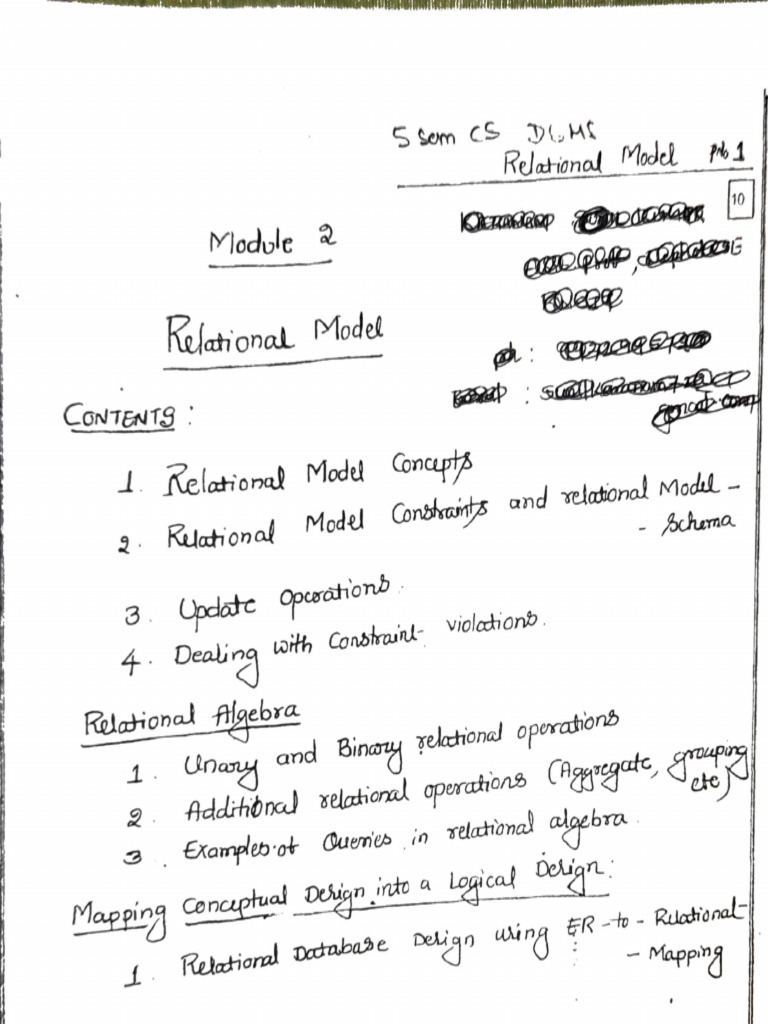 5 Sem CS DBMS
Relational Model P.No 1
10
Module 2
Relational Model
CONTENTS :
1. Relational Model Concepts
2. Relational Model Constraints and relational Model -
- Schema
3. Update Operations.
4. Dealing with Constraint violations.
Relational Algebra
1. Unary and Binary relational operations
2. Additional relational operations (Aggregate, grouping
etc)
3 Examples of Queries in relational algebra.
Mapping Conceptual Design into a Logical Design:
1. Relational Database Design using ER-to-Relational-
- Mapping